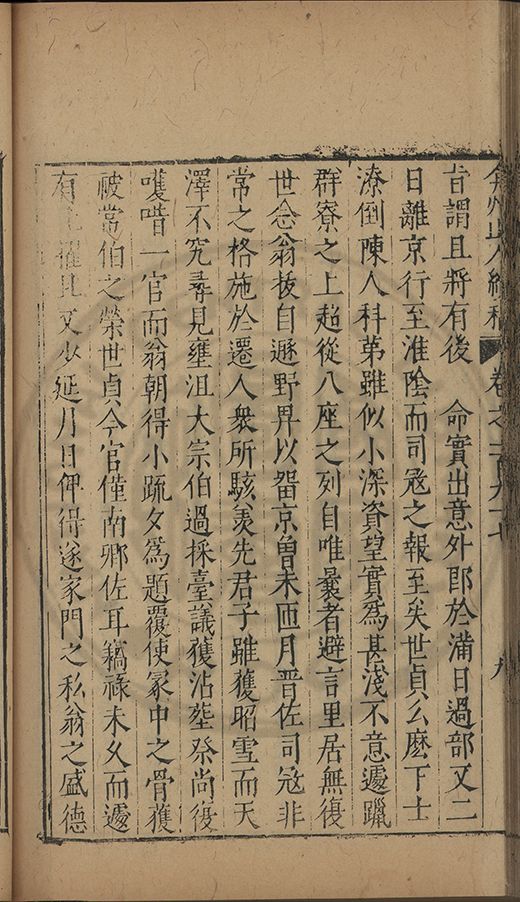 弇州山人續稿 卷之一百九十七 九
旨謂且將有後　命實出意外郎於滿日過部又二
日離京行至淮陰而司寇之報至矣世貞么麽下士
潦倒陳人科第雖似小深資望實爲甚淺不意遽躐
群寮之上超從八座之列自唯曩者避言里居無復
世念翁拔自遯野畀以畱京曾未匝月晉佐司寇非
常之格施於遷人衆所駭羡先君子雖獲昭雪而天
澤不究尋見壅沮大宗伯過採臺議獲沾塟祭尚復
嚄唶一官而翁朝得小疏夕爲題覆使冢中之骨獲
被常伯之榮世貞今官僅南卿佐耳竊祿未久而遽
有且又少延月日俾得遂家門之私翁之盛德